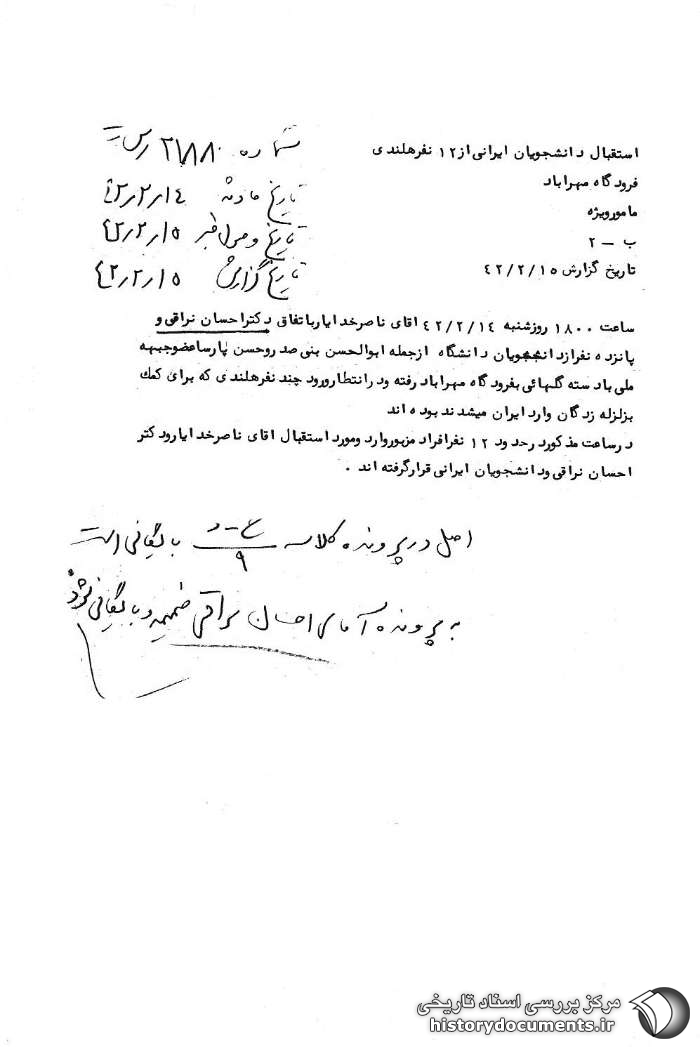 استقبال دانشجویان ایرانی از ۱۲ نفر هلندی
فرودگاه مهراباد
مامور ویژه
ب - ۲
تاریخ گزارش ۴۲/۲/۱۵
شماره ۲۱۸۸۰
تاریخ حادثه ۴۲/۲/۱۴
تاریخ وصول خبر ۴۲/۲/۱۵
تاریخ گزارش ۴۲/۲/۱۵
ساعت ۱۸۰۰ روز شنبه ۴۲/۲/۱۴ اقای ناصر خدایار باتفاق دکتر احسان نراقی و
پانزده نفر از دانشجویان دانشگاه از جمله ابوالحسن بنی صدر و حسن پارسا عضو جبهه
ملی با دسته گلهائی بفرودگاه مهراباد رفته و در انتظار ورود چند نفر هلندی که برای کمک
بزلزله زدگان وارد ایران میشدند بوده اند
در ساعت مذکور در حدود ۱۲ نفر افراد مزبور وارد و مورد استقبال اقای ناصر خدایار و دکتر
احسان نراقی و دانشجویان ایرانی قرار گرفته اند .
اصل در پرونده کلاسه ۹ بایگانی است
به پرونده آقای احسان نراقی ضمیمه و بایگانی شود
مرکز بررسی اسناد تاریخی
historydocuments.ir